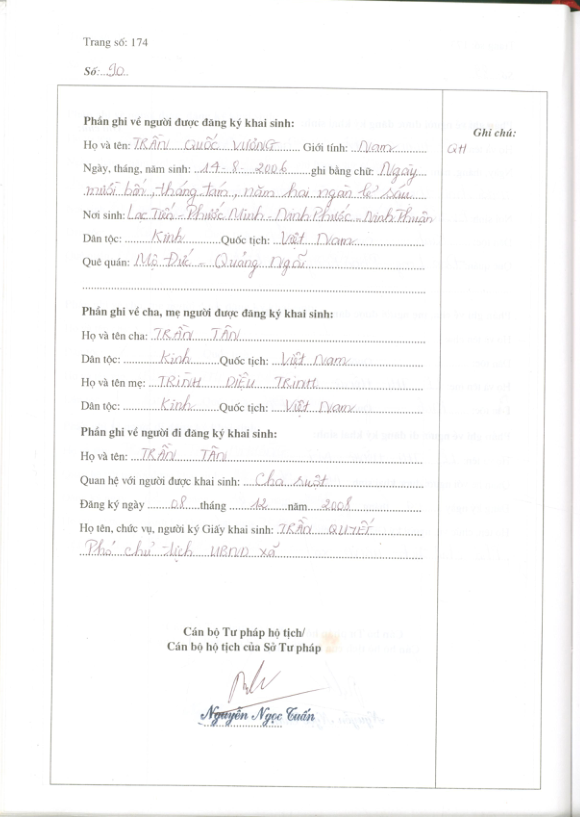 Trang số: 174
Số: 90
Phần ghi về người được đăng ký khai sinh:
Ghi chú:
Họ và tên: TRẦN QUỐC VƯƠNG Giới tính: Nam
QH
Ngày, tháng, năm sinh: 14-8-2006 ghi bằng chữ: Ngày
mười bốn, tháng tám, năm hai ngàn lẻ sáu
Nơi sinh: Lạc Tiến - Phước Minh - Ninh Phước - Ninh Thuận
Dân tộc: Kinh Quốc tịch: Việt Nam
Quê quán: Mộ Đức - Quảng Ngãi
Phần ghi về cha, mẹ người được đăng ký khai sinh:
Họ và tên cha: TRẦN TÂN
Dân tộc: Kinh Quốc tịch: Việt Nam
Họ và tên mẹ: TRỊNH DIỆU TRINH
Dân tộc: Kinh Quốc tịch: Việt Nam
Phần ghi về người đi đăng ký khai sinh:
Họ và tên: TRẦN TÂN
Quan hệ với người được khai sinh: Cha ruột
Đăng ký ngày 08 tháng 12 năm 2008
Họ tên, chức vụ, người ký Giấy khai sinh: TRẦN QUYẾT
Phó chủ tịch UBND xã
Cán bộ Tư pháp hộ tịch/
Cán bộ hộ tịch của Sở Tư pháp
Nguyễn Ngọc Tuấn